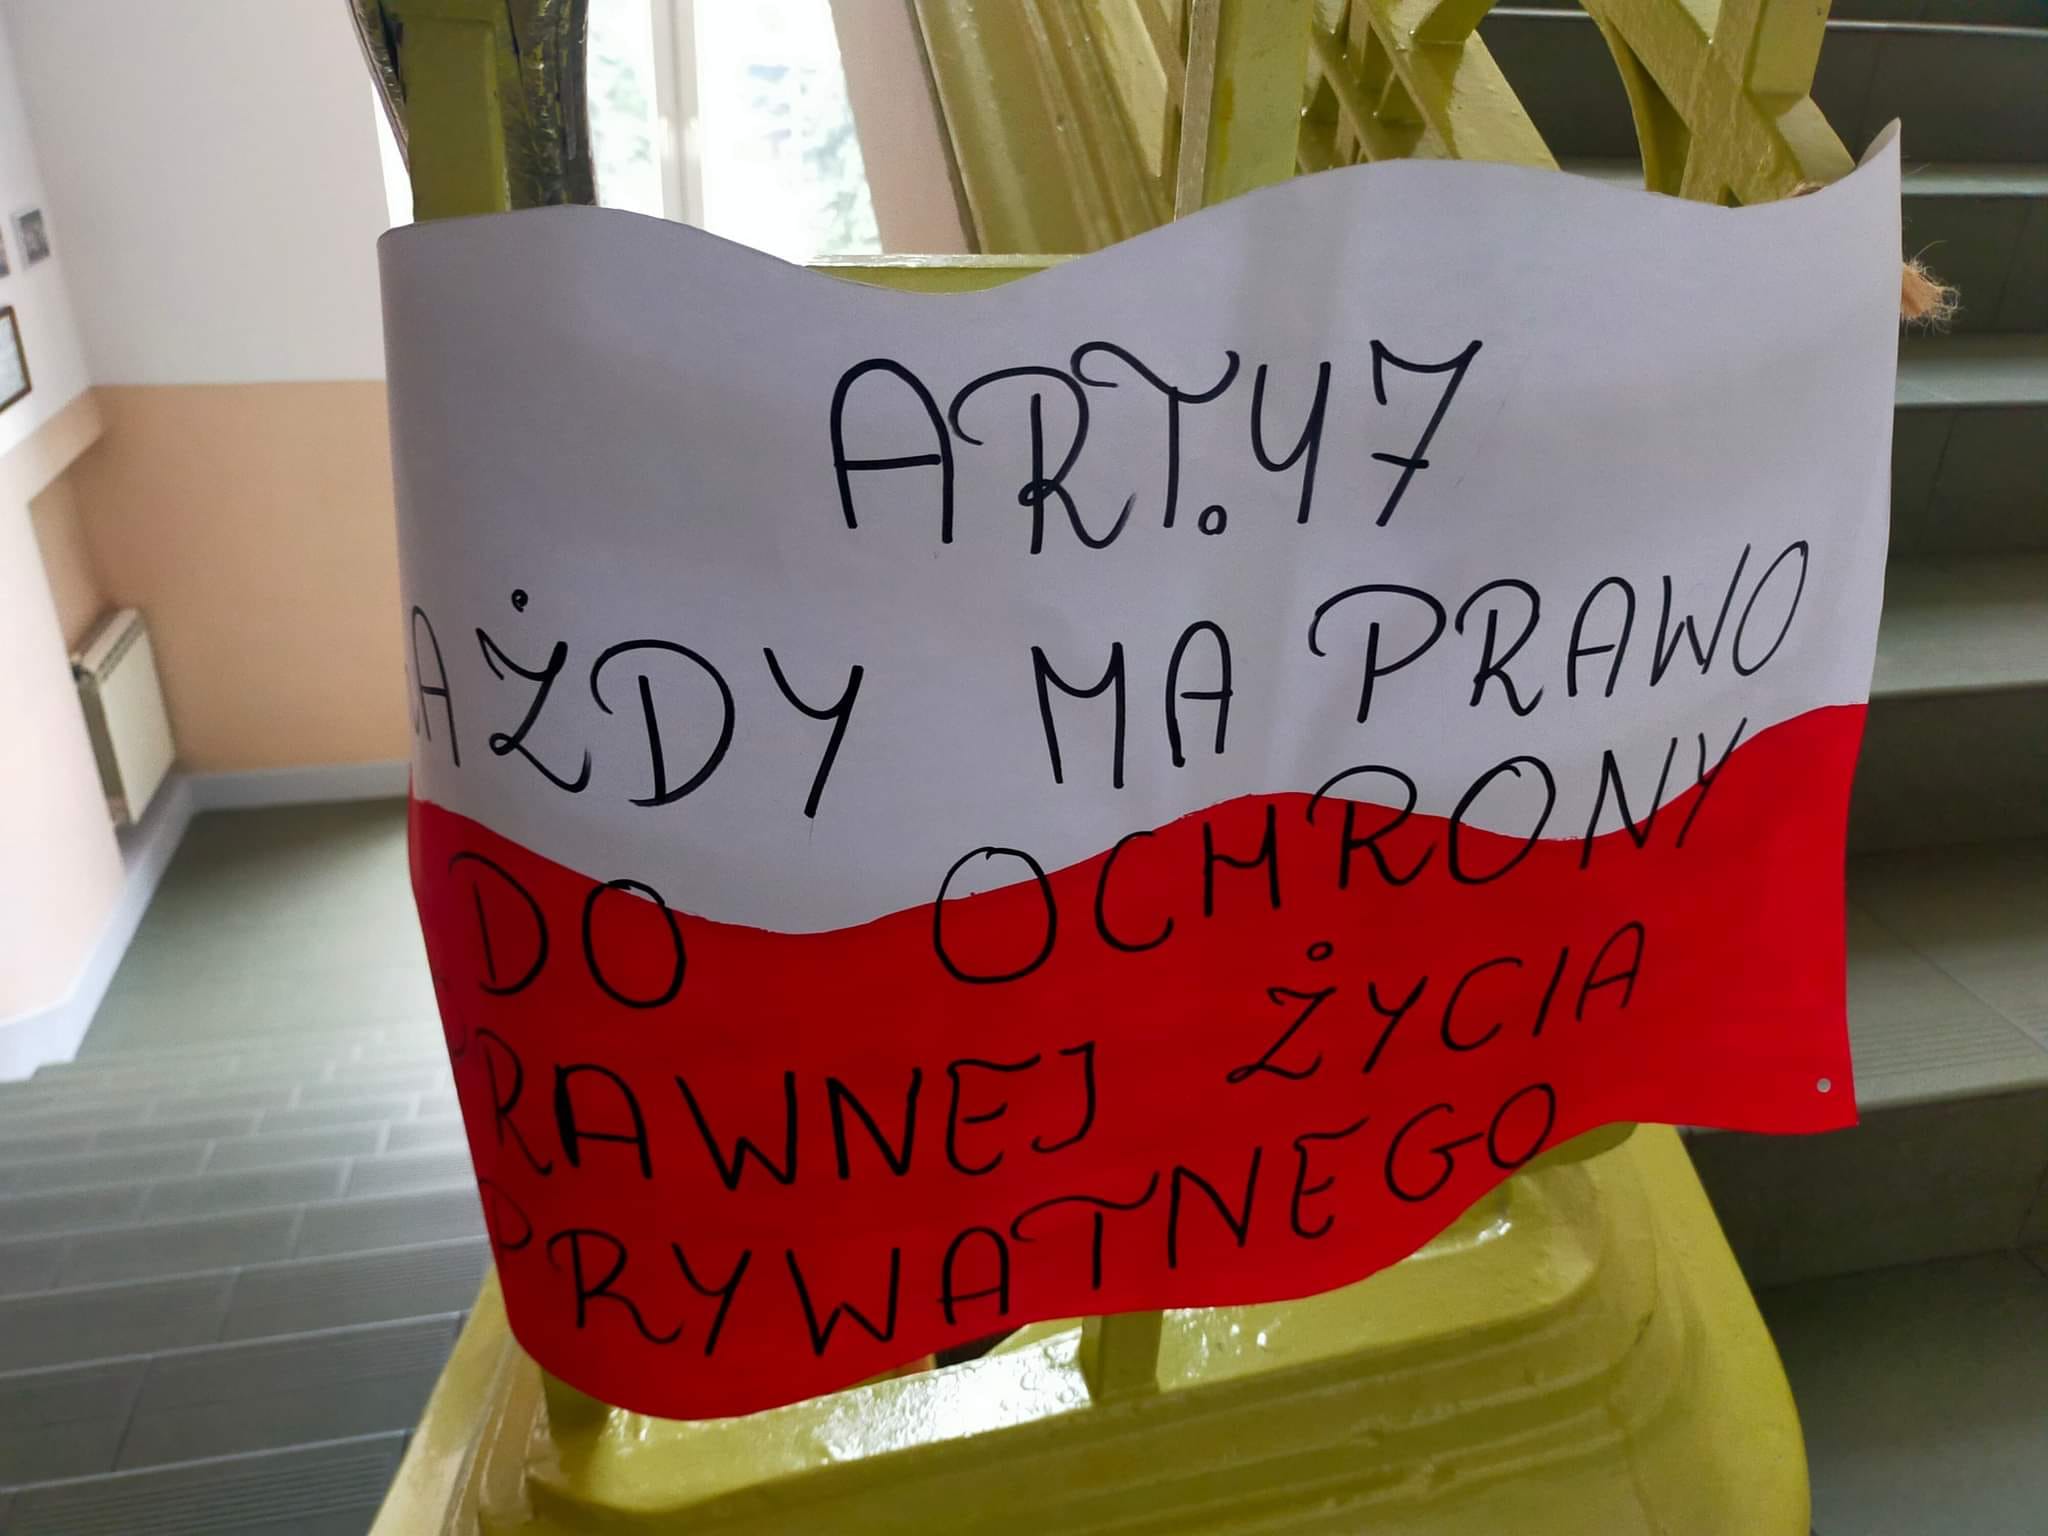 ART. 47
KAŻDY MA PRAWO
DO OCHRONY
PRAWNEJ ŻYCIA
PRYWATNEGO